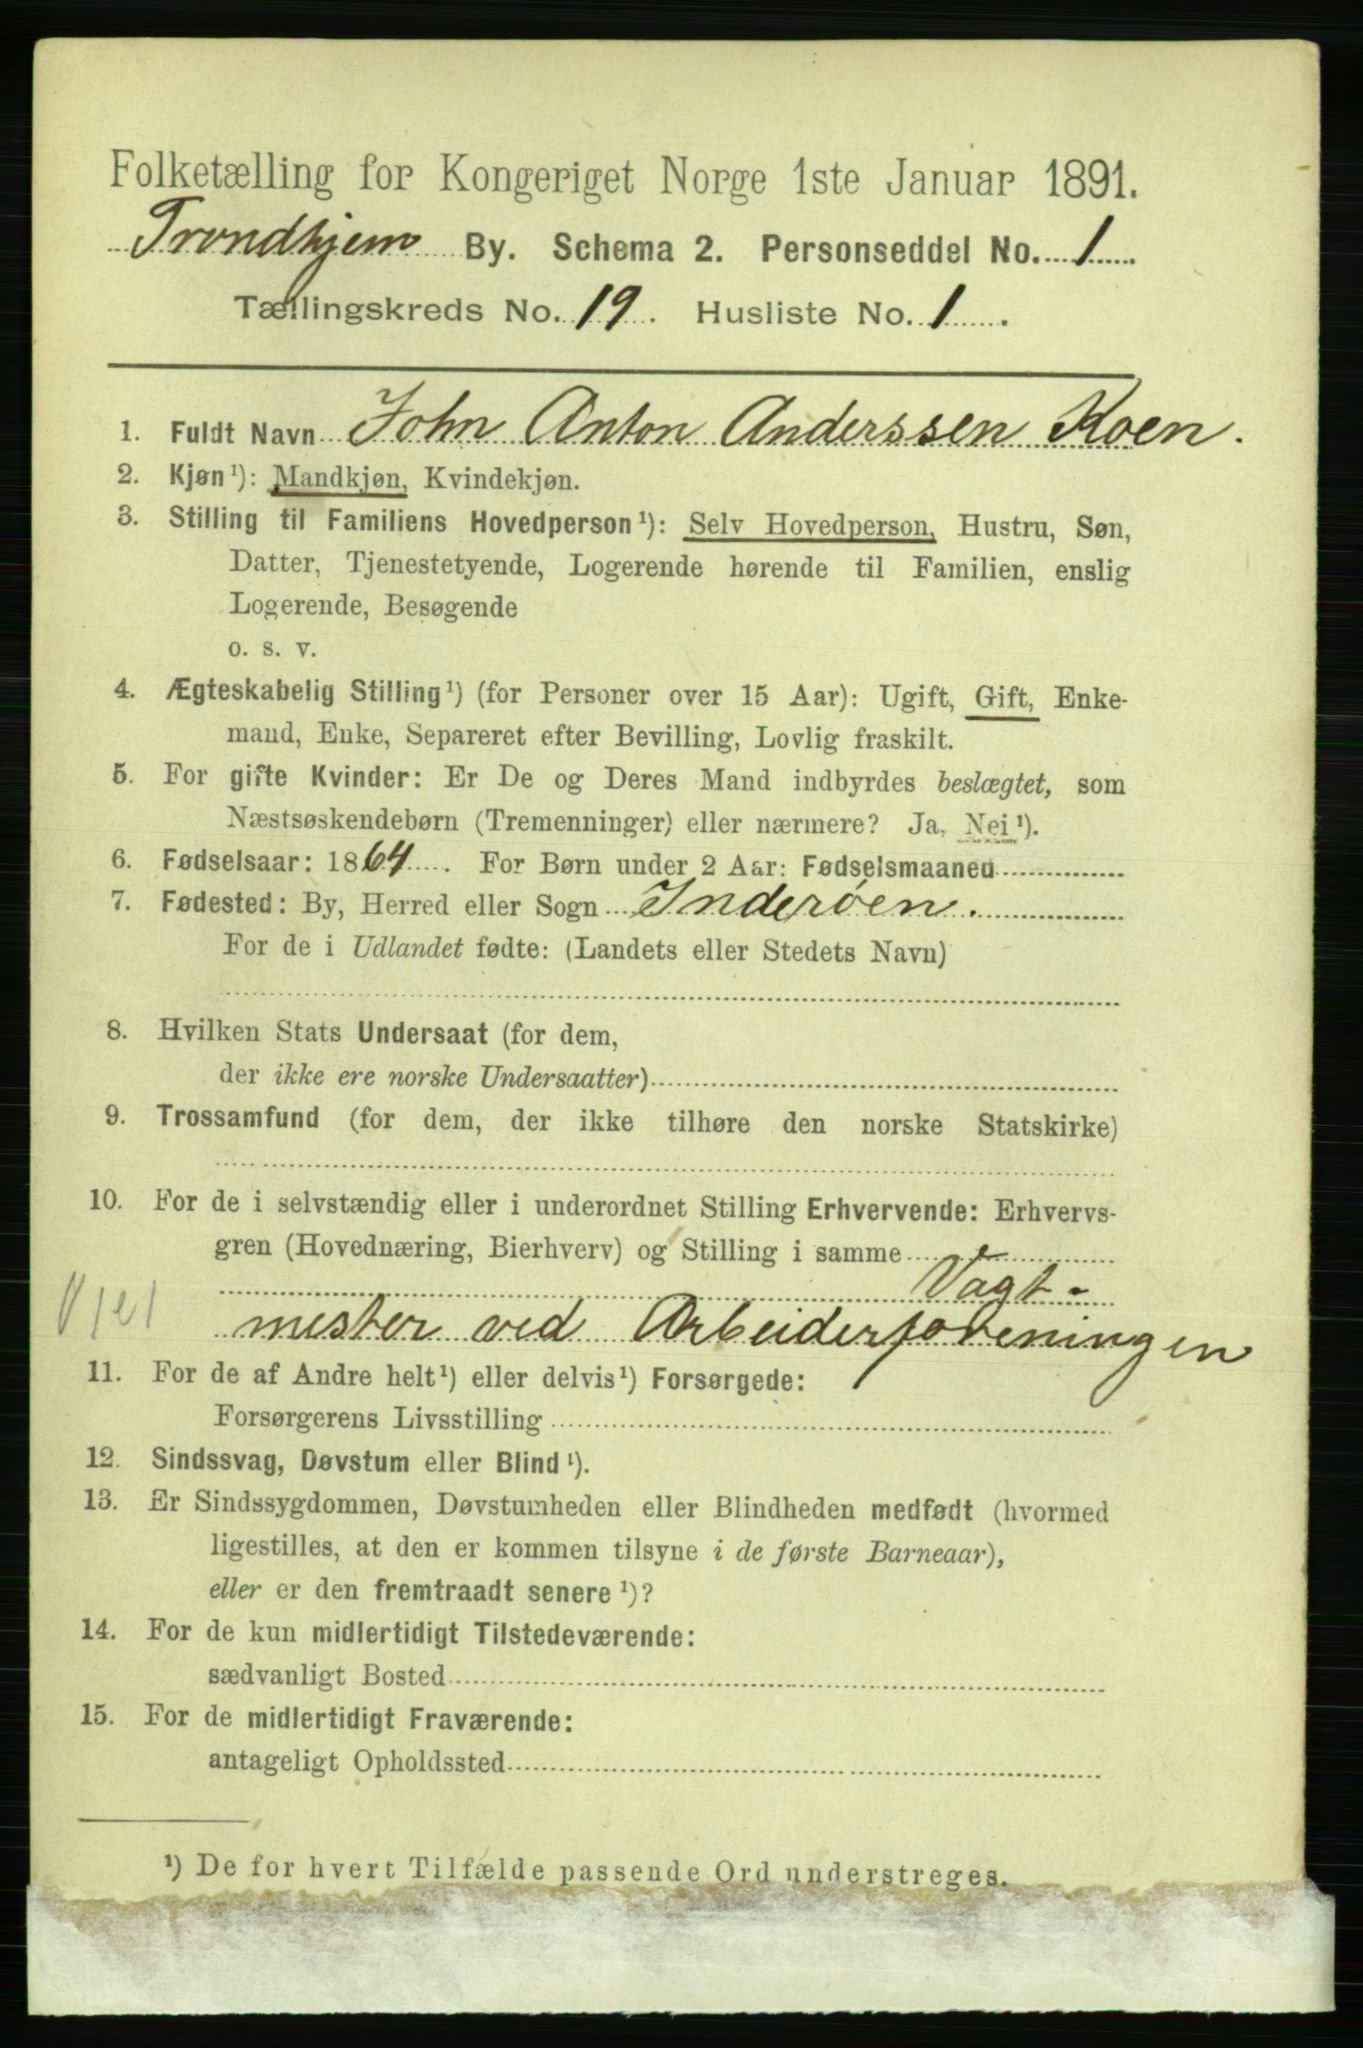 Folketælling for Kongeriget Norge 1ste Januar 1891.
Trondhjem By. Schema 2. Personseddel No. 1
Tællingskreds No. 19. Husliste No. 1.
1. Fuldt Navn John Anton Anderssen Koen.
2. Kjøn¹): Mandkjøn, Kvindekjøn.
3. Stilling til Familiens Hovedperson¹): Selv Hovedperson, Hustru, Søn,
Datter, Tjenestetyende, Logerende hørende til Familien, enslig
Logerende, Besøgende
o. s. v.
4. Ægteskabelig Stilling¹) (for Personer over 15 Aar): Ugift, Gift, Enke-
mand, Enke, Separeret efter Bevilling, Lovlig fraskilt.
5. For gifte Kvinder: Er De og Deres Mand indbyrdes beslægtet, som
Næstsøskendebørn (Tremenninger) eller nærmere? Ja, Nei¹).
6. Fødselsaar: 1864. For Børn under 2 Aar: Fødselsmaaned
7. Fødested: By, Herred eller Sogn Inderøen.
For de i Udlandet fødte: (Landets eller Stedets Navn)
8. Hvilken Stats Undersaat (for dem,
der ikke ere norske Undersaatter)
9. Trossamfund (for dem, der ikke tilhøre den norske Statskirke)
10. For de i selvstændig eller i underordnet Stilling Erhvervende: Erhvervs-
gren (Hovednæring, Bierhverv) og Stilling i samme
Vagt-
mester ved Arbeiderforeningen
11. For de af Andre helt¹) eller delvis¹) Forsørgede:
Forsørgerens Livsstilling
12. Sindssvag, Døvstum eller Blind¹).
13. Er Sindssygdommen, Døvstumheden eller Blindheden medfødt (hvormed
ligestilles, at den er kommen tilsyne i de første Barneaar),
eller er den fremtraadt senere¹)?
14. For de kun midlertidigt Tilstedeværende:
sædvanligt Bosted
15. For de midlertidigt Fraværende:
antageligt Opholdssted
¹) De for hvert Tilfælde passende Ord understreges.